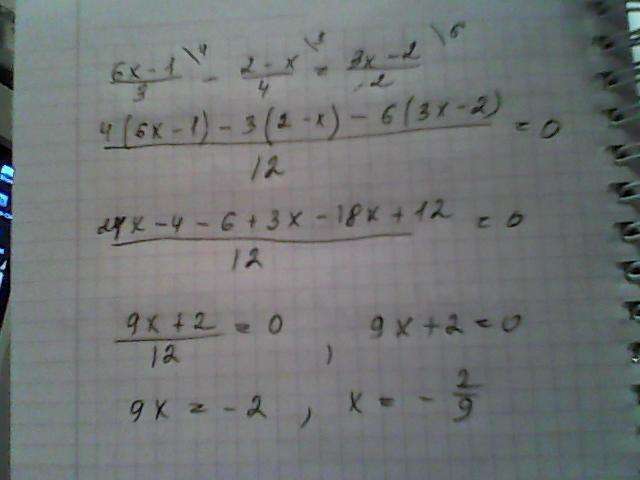 (6x-1)/3 \4 - (2-x)/4 \3 = (3x-2)/2 \6
(4(6x-1)-3(2-x)-6(3x-2))/12 = 0
(24x-4-6+3x-18x+12)/12 = 0
(9x+2)/12 = 0 , 9x+2=0
9x = -2 , x = -2/9